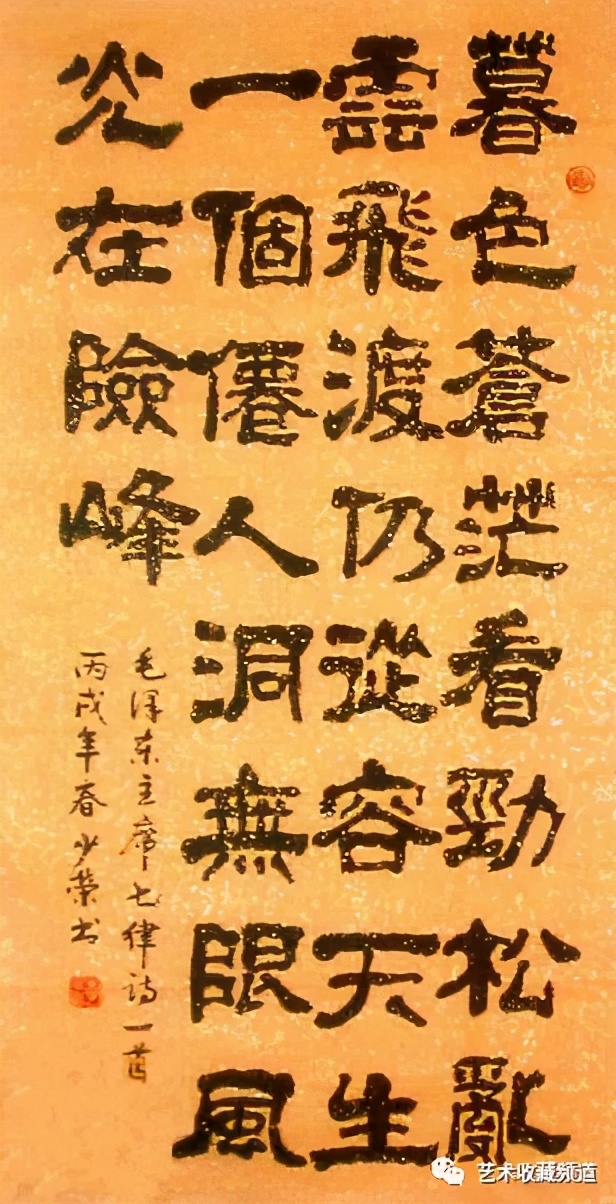 暮色蒼茫看勁松亂
雲飛渡仍從容天生
一個僊人洞無限風
光在險峰
毛泽东主席七律诗一首
丙戌年春少荣书
艺术收藏频道